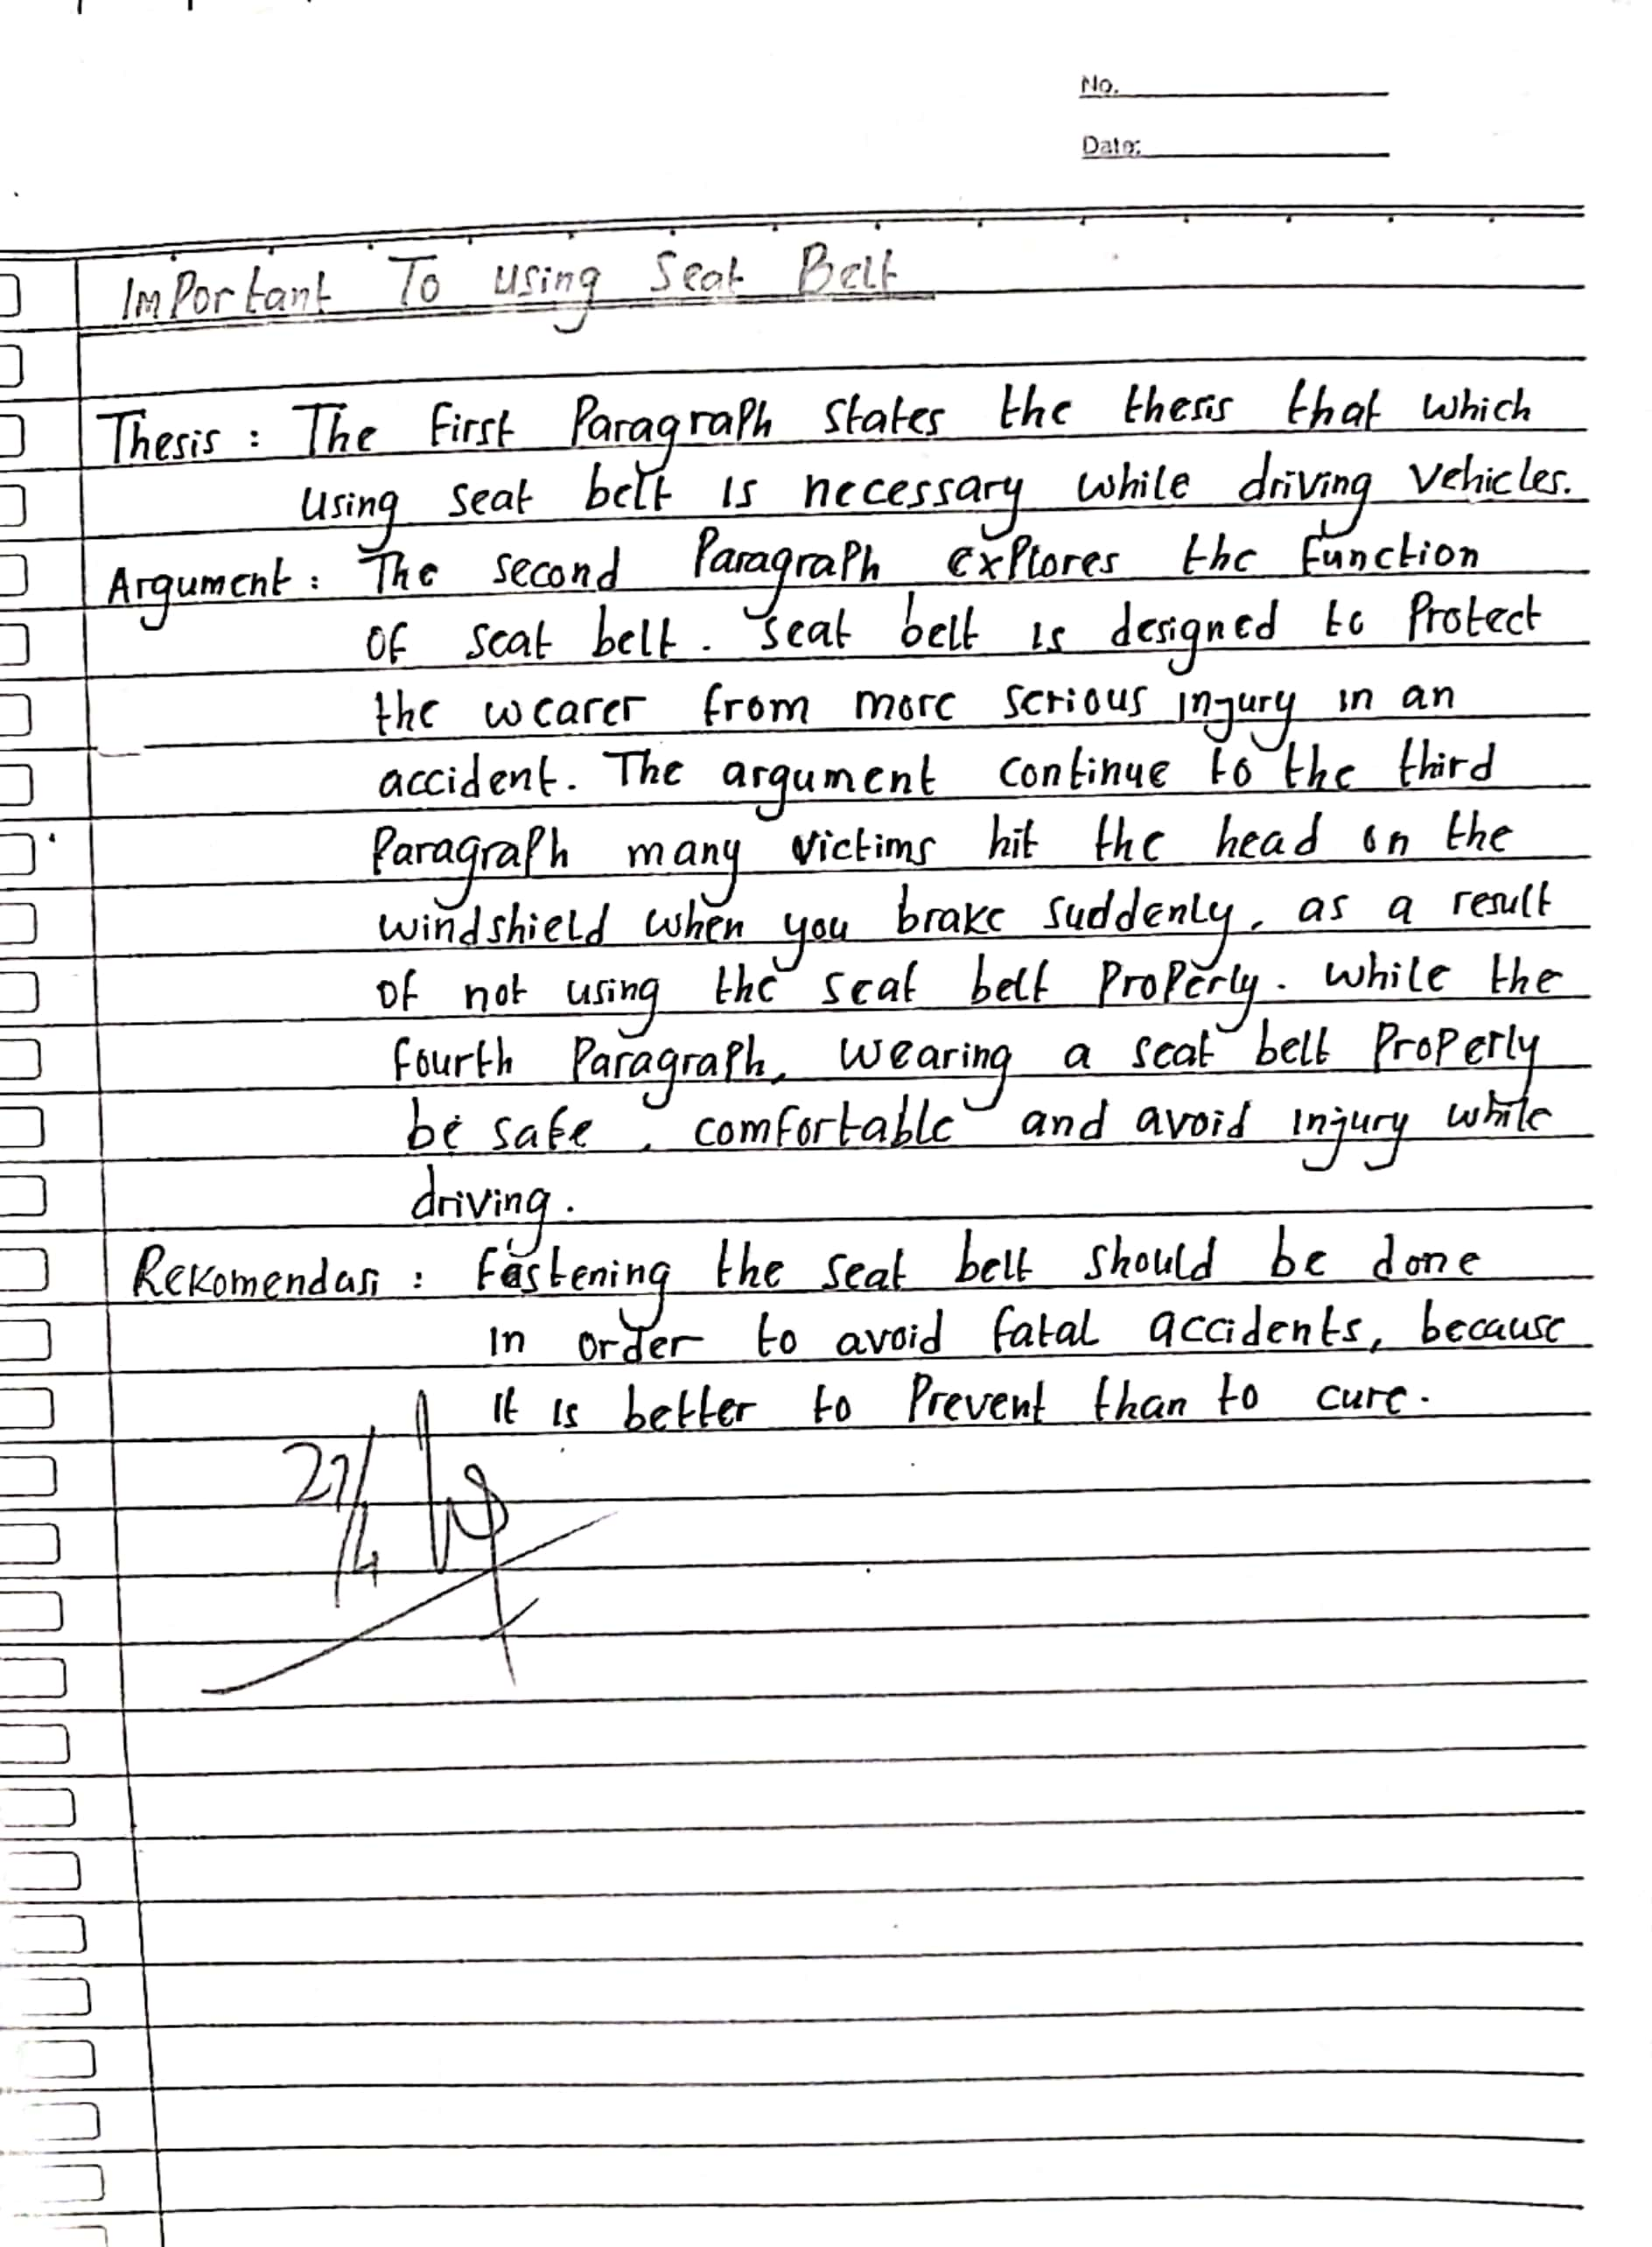 No.
Date:
Important To using Seat Belt
Thesis : The first Paragraph states the thesis that which
using seat belt is necessary while driving vehicles.
Argument : The second Paragraph explores the function
of seat belt. Seat belt is designed to Protect
the wearer from more serious injury in an
accident. The argument continue to the third
Paragraph many victims hit the head on the
windshield when you brake suddenly, as a result
of not using the seat belt Properly. While the
fourth Paragraph, wearing a seat belt Properly
be safe, comfortable and avoid injury while
driving.
Rekomendasi : Fastening the seat belt should be done
in order to avoid fatal accidents, because
it is better to Prevent than to cure.
27/4